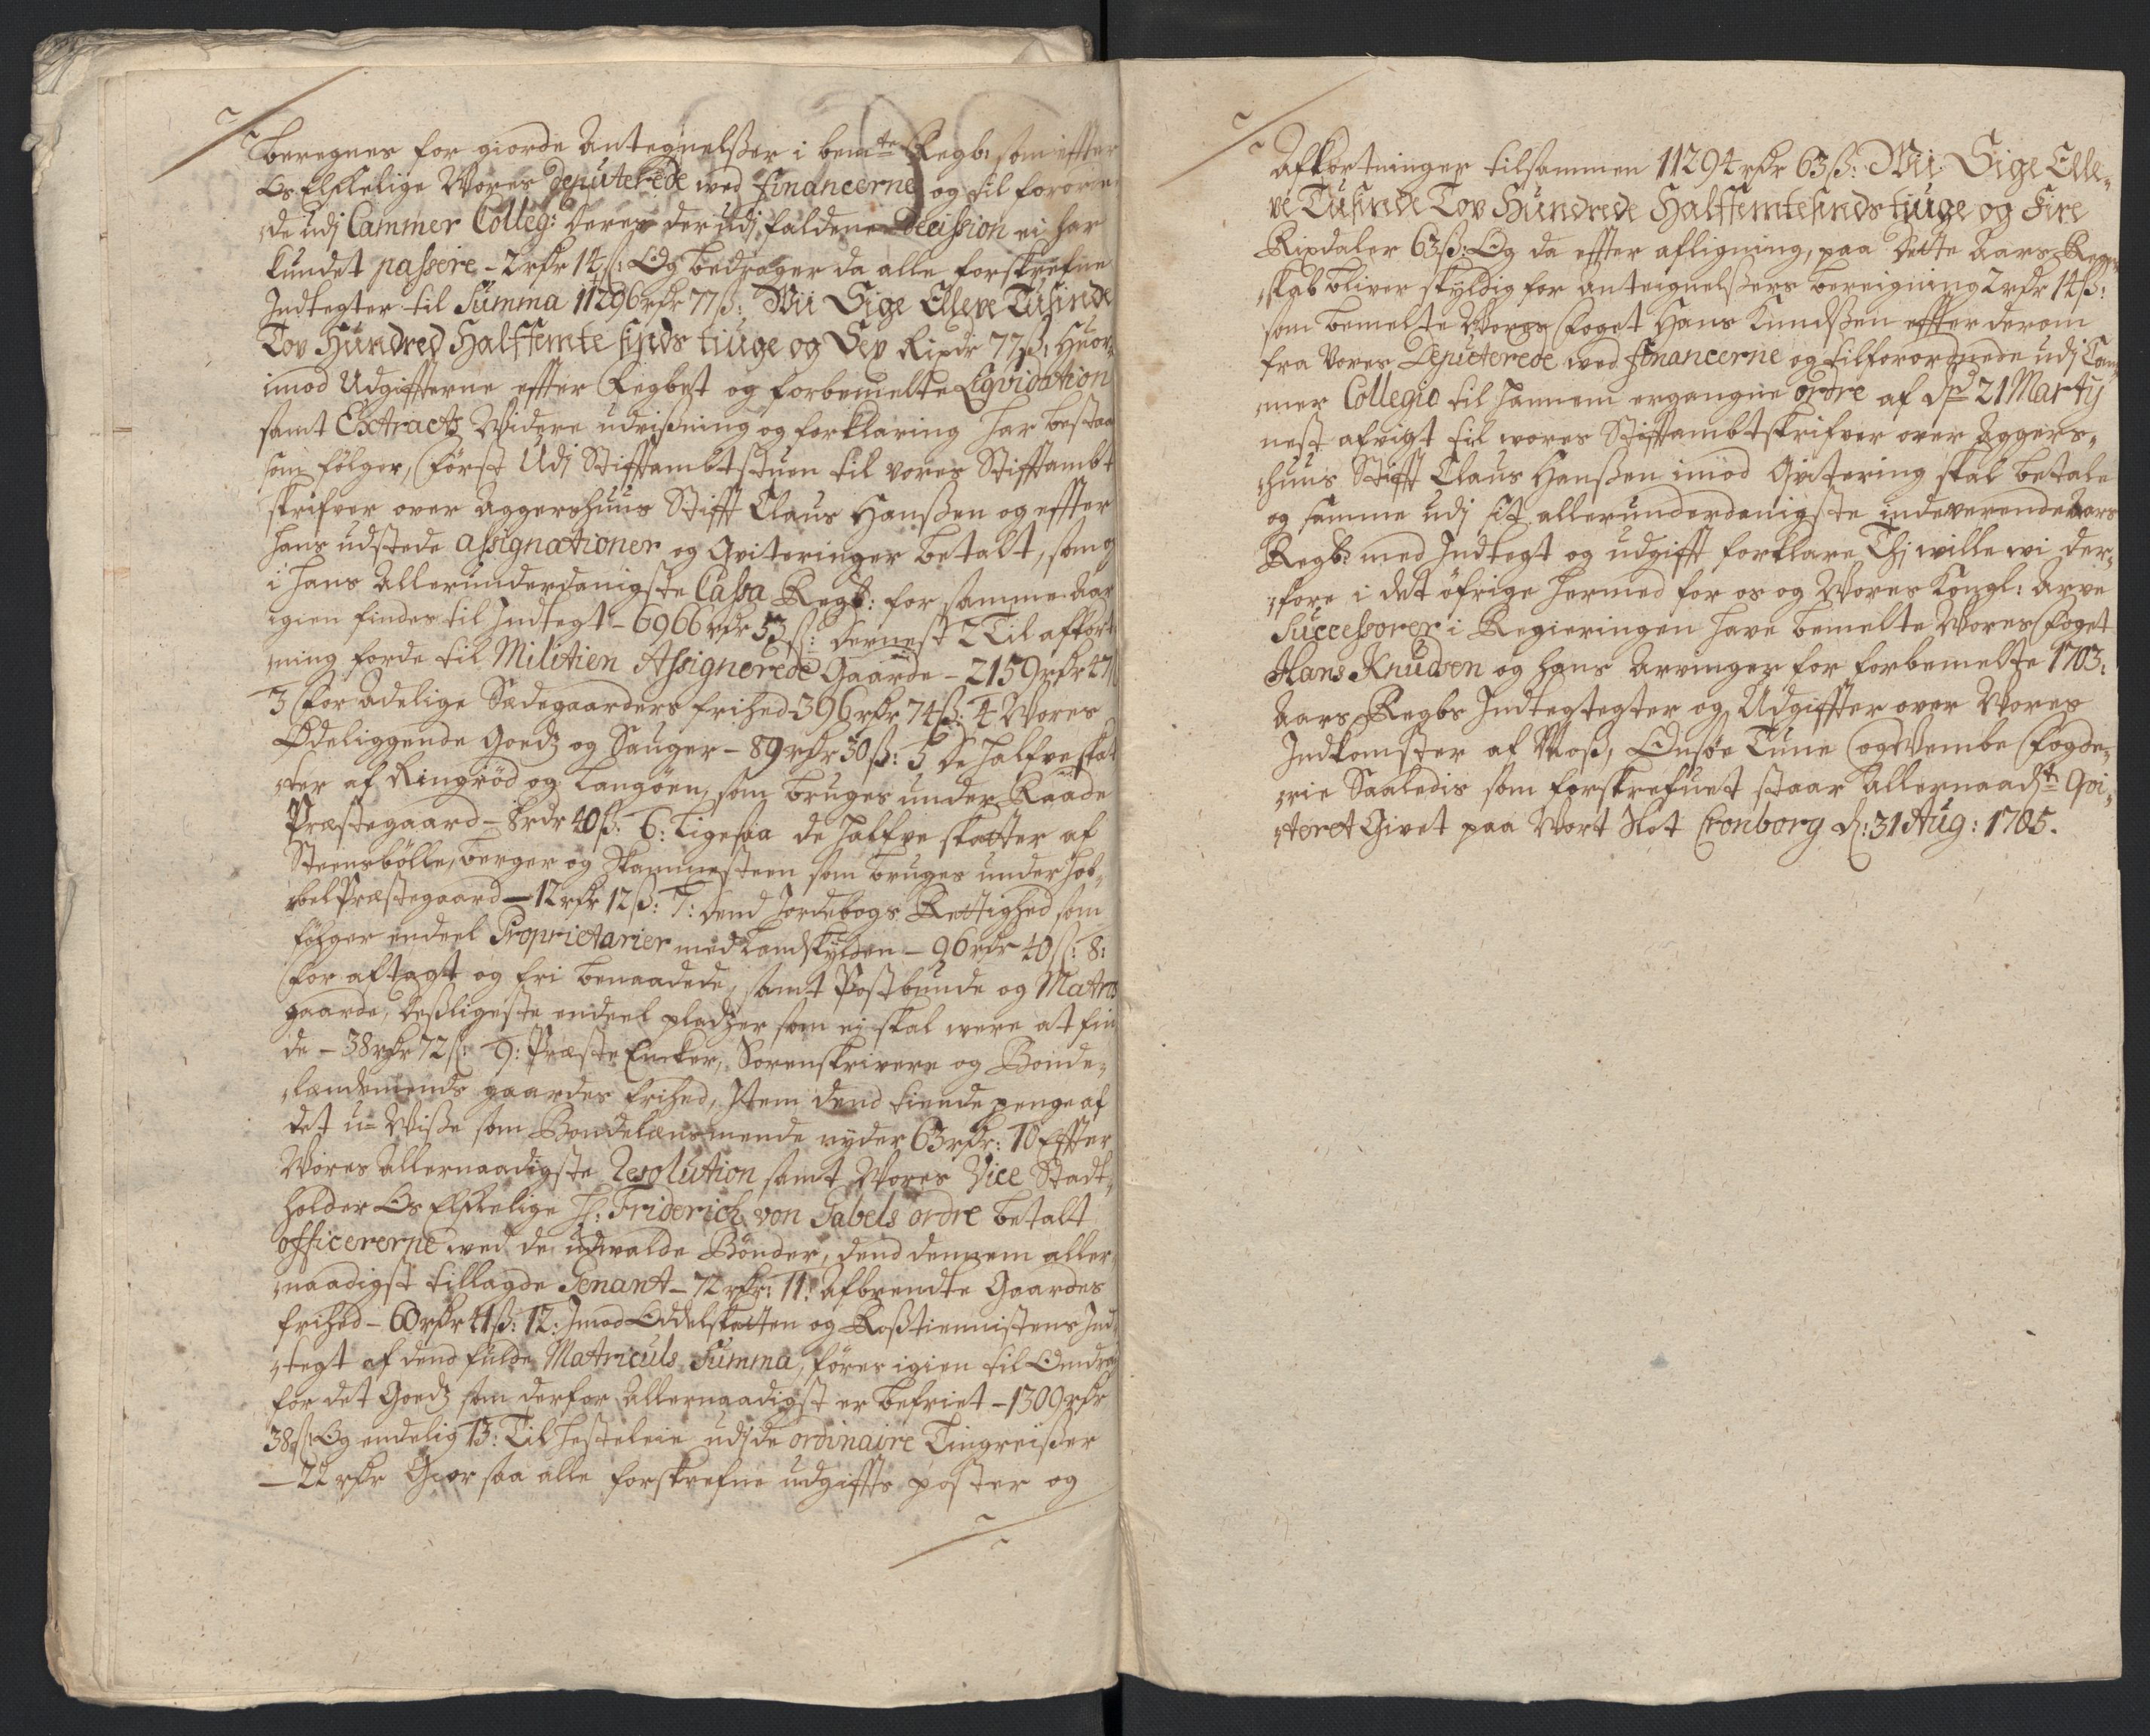 beregnes for giorde Antegnelßer i bem:te Regb: som effter
Os Elskelige Vores Deputerede ved Financerne og til fororne
de udj Cammer Colleg: deres derudj faldene Decission ei har
kundet passere - 2 rdr 14 ß: Og bedrager da alle forskrefne
Indtegter til Summa 11296 rdr 77 ß: Wii Sige Elleve Tusinde
Tov Hundred Halffemte sinds tiuge og Sex Rixdr 77 ß: Huor
imod Udgiffterne effter Regbet og forbemelte Liqvidation
samt Extracts Widere udvißning og forklaring har bestaaet
som følger, Først Udj Stifftambtstuen til vores Stifftambt
skrifver over Aggershuus Stifft Claus Hanßen og effter
hans udstede Assignationer og Qviteringer betalt, som og
i hans Allerunderdanigste Cassa Regb: for samme Aar
igien findes til Indtegt - 6966 rdr 53 ß: dernest 2 Til afkort
ning førde til Militien Assignerede Gaarde - 2159 rdr 47 ß
3 For Adelige Sædegaarders frihed 396 rdr 74 ß: 4 Vores
Ødeliggende Goedz og Sauger - 89 rdr 30 ß: 5 De halfve skat
ter af Ringrød og Langøen, som bruges under Raade
Præstegaard - 8 rdr 40 ß: 6: Ligesaa de halfve skatter af
Steensbølle, Berger og Skammesteen som bruges under Hob,
bel Præstegaard - 12 rdr 12 ß: 7: Dend Jordebogs Rettighed som
følger endeel Proprietarier med Landskylden - 96 rdr 40 ß: 8:
For aftagt og fri benaadede, samt Postbunde og Matros
gaarde, deßligeste endeel pladzer som ej skal were at fin
de - 38 rdr 72 ß: 9: Præste Encker, Sorenskrivere og Bonde,
lændsmends gaardes frihed, Item dend tiende penge af
det u-Wiße som Bondelænsmende nyder 63 rdr: 10 Effter
Vores Allernaadigste Resolution samt Vores Vice Stadt,
holder Os Elskelige H: Friderich von Gabels ordre betalt
officererne ved de udvalde Bønder, dend dennem aller,
naadigst tillagde Tenant - 72 rdr: 11: Afbrendte Gaardes
frihed - 60 rdr 41 ß: 12: Imod Oddelskatten og Roßtiennistens Ind,
tegt af dend fulde Matriculs Summa, føres igien til Omdrag
for det Goedz som derfor Allernaadigst er befriet - 1309 rdr
38 ß: Og endelig 13: Til hesteleie udj de ordinaire Tingreißer
- 22 rdr Giør saa alle forskrefne udgiffts poster og
Afkortninger tilsammen 11294 rdr 63 ß: Wii Sige Elle,
ve Tusinde Tov Hundrede Halffemtesindstiuge og Fire
Rixdaler 63 ß: Og da effter afligning, paa dette Aars Regn
skab bliver skyldig for Anteignelßers bereigning 2 rdr 14 ß:
som bemelte Vores Foget Hans Knudßen effter derom
fra Vores Deputerede ved Financerne og tilforordnede udj Cam,
mer Collegio til hannem ergangne ordre af d: 21 Martij
nest afvigt til vores Stifftambtskrifver over Aggers,
huus Stifft Claus Hanßen imod Qvitering skal betale
og samme udj sit allerunderdanigste indeverende Aars
Regb: med Indtegt og udgifft forklare Thi wille wi der,
fore i det øfrige hermed for os og Vores Kongl: Arve
Successorer i Regieringen have bemelte Vores Foget
Hans Knudsen og hans Arvinger for forbemelte 1703:
Aars Regbs Indtegtegter og Udgiffter over Vores
Indkomster af Moß, Onsøe Tune og Vembe Fogde,
rie Saaledis som forskrefuet staar Allernaad:st Qvi,
teret Givet paa Vort Slot Cronborg d: 31 Aug: 1705.